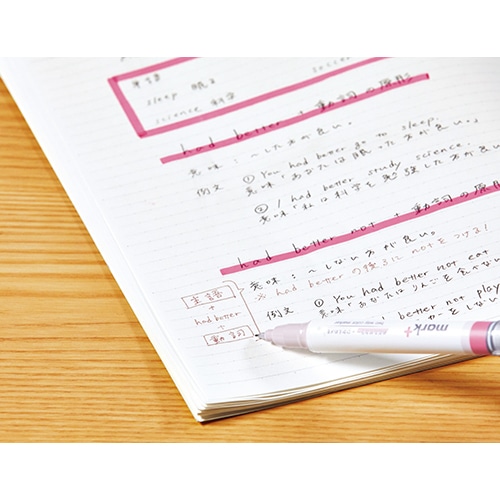 単語
sleep 眠る
science 科学
had better + 動詞の原形
意味：～した方が良い。
例文 ① You had better go to sleep.
意味「あなたは眠った方が良い。」
② I had better study science.
意味「私は科学を勉強した方が良い
had better not + 動詞の原
意味：～しない方が良い。
※ had betterの後ろに notをつける!
例文 ① You had better not eat
意味「あなたはりんごを食べな
had better not play
主語
+
had better
+
動詞
mark+